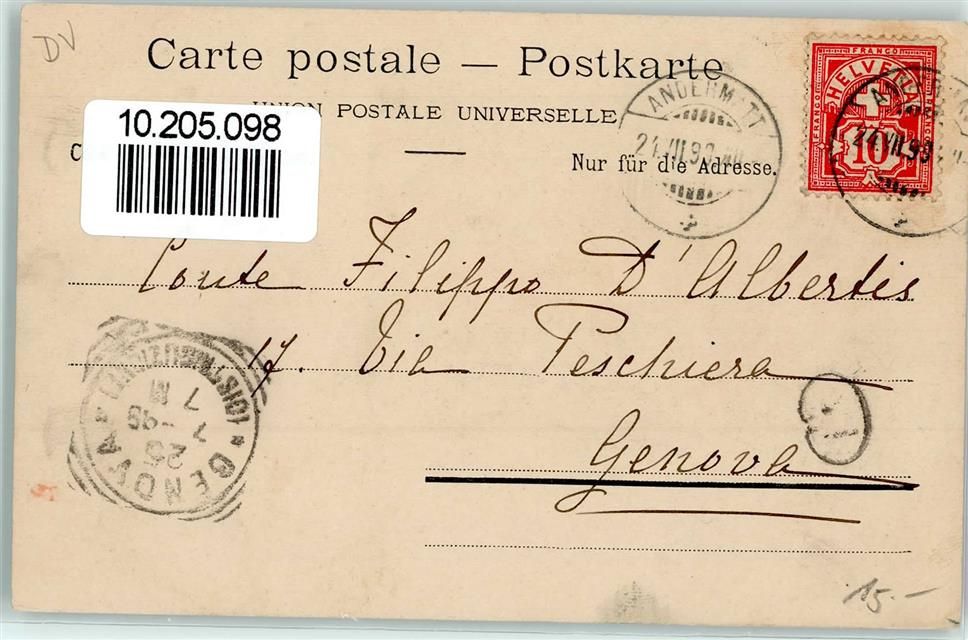 DV
Carte postale — Postkarte
UNION POSTALE UNIVERSELLE
10.205.098
Nur für die Adresse.
FRANCO
HELVETIA
FRANCO
FRANCO
10
ANDERMATT
24.VII.99
24.VII.99
Conte Filippo D'Albertis
17. Via Peschiera
Genova
GENOVA
25
7-99
7 M
15.-